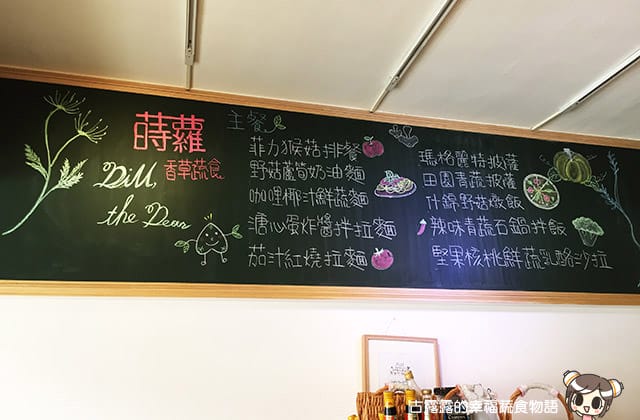 蒔蘿
香草蔬食
Dill,
the Dear
主餐
菲力猴菇排餐
野菇蘆筍奶油麵
咖哩椰汁鮮蔬麵
溏心蛋炸醬拌拉麵
茄汁紅燒拉麵
瑪格麗特披薩
田園青蔬披薩
什錦野菇燉飯
辣味青蔬石鍋拌飯
堅果核桃鮮蔬乳酪沙拉
古露露的幸福蔬食物語